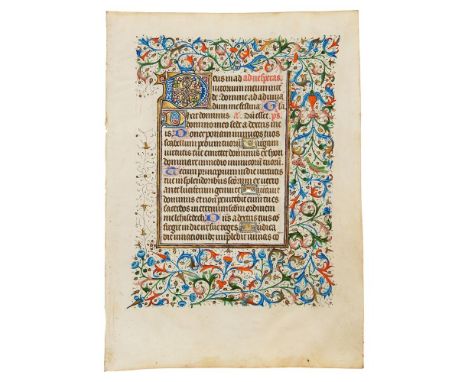 Deus in ad ad uesperas.
iutorium meum inten
de. domine ad adiuua
dum me festina. Gla
Dixit dominus a. Dū esset. ps.
domino meo sede a dextris me
is. Donec ponam inimicos tuos
scabellum pedum tuorū. Uirgam
uirtutis tue emittet dominus ex syon
dominare in medio inimicorū tuorū.
Tecum principium in die uirtutis
tue in splendoribus sctorum ex utero
ante luciferum genui te. Iurauit
dominus et non penitebit eum tu es
sacerdos in eternum scdm ordinem
melchisedech. Dns a dextris tuis co
fregit in die ire sue reges. Iudica
bit in nationibus implebit ruinas co